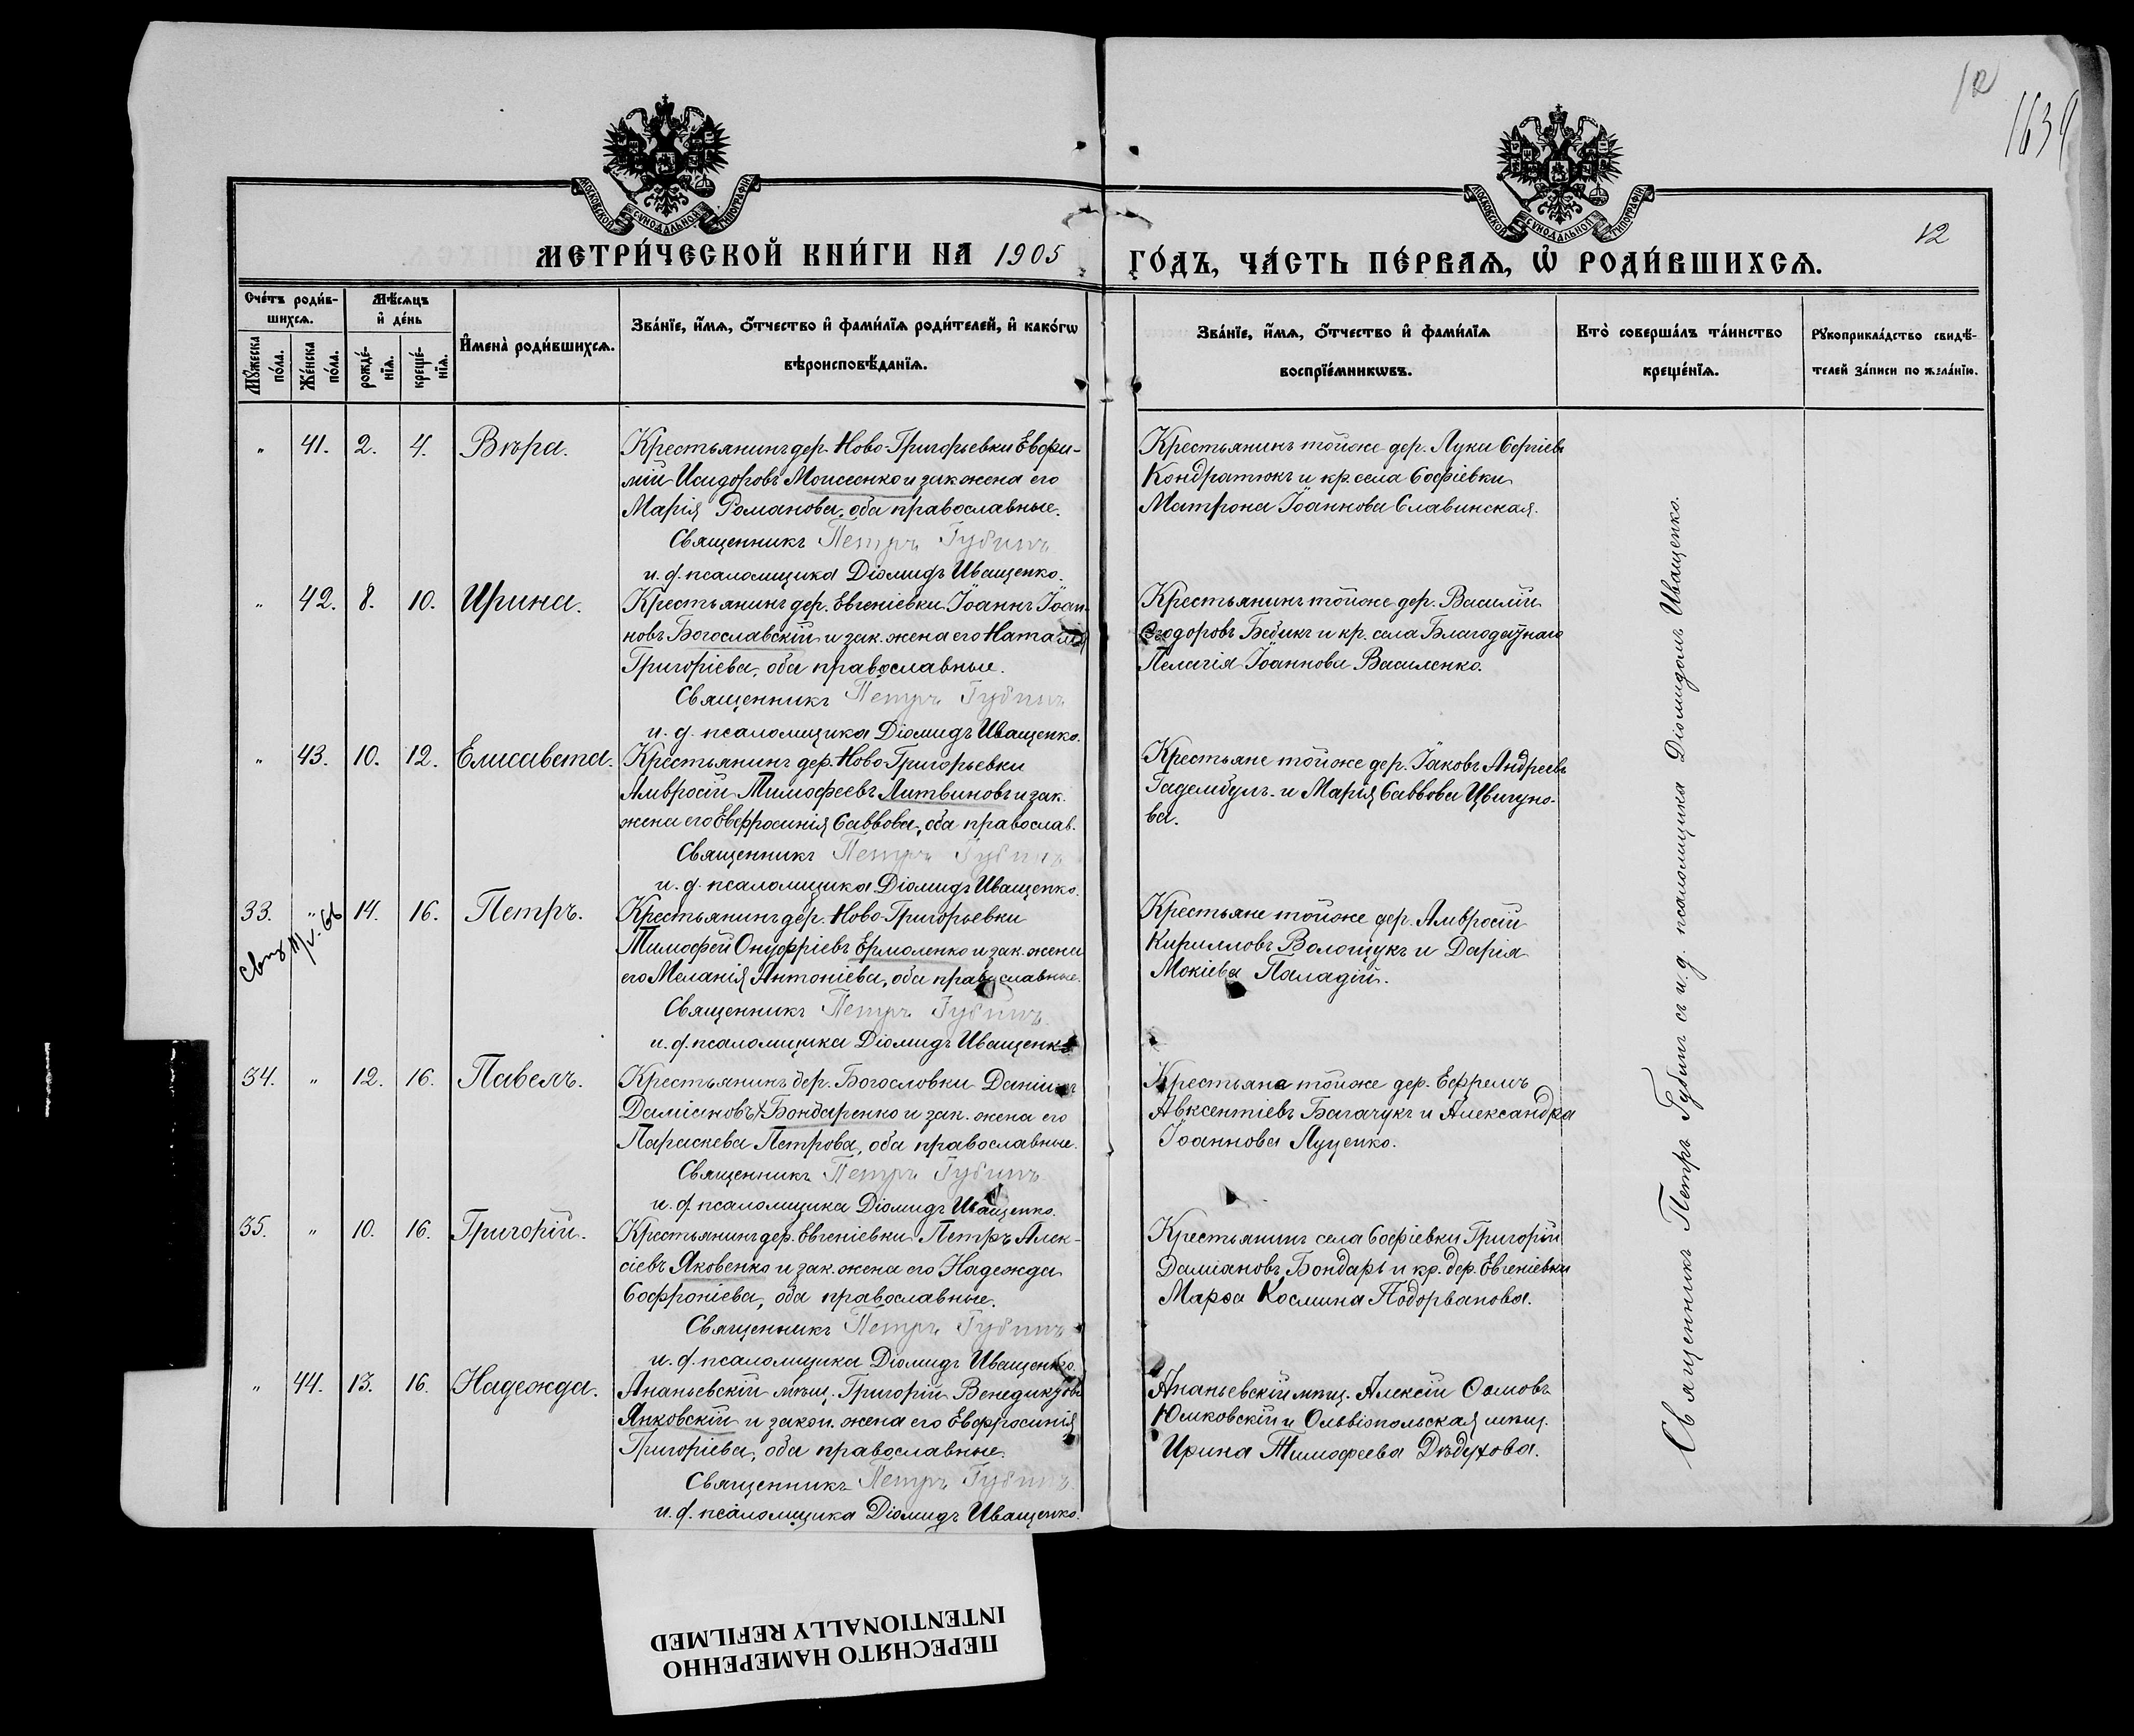 12
1639
МОСКОВСКОЙ СѴНОДАЛЬНОЙ ТИПОГРАФІИ
МОСКОВСКОЙ СѴНОДАЛЬНОЙ ТИПОГРАФІИ
МЕТРИ́ЧЕСКОЙ КНИ́ГИ НА 1905
ГО́ДЪ, ЧА́СТЬ ПЕ́РВАѦ, Ѡ҆ РОДИ́ВШИХСѦ.
12
Сче́тъ роди́в-
шихсѧ.
Мѣ́сѧцъ
и҆ де́нь
Мꙋ́жеска
по́ла.
Же́нска
по́ла.
рожде́-
нїѧ.
креще́-
нїѧ.
И҆мена̀ роди́вшихсѧ.
Зва́нїе, и҆́мѧ, ѻ҆́тчество и҆ фами́лїѧ роди́телей, и҆ како́гѡ
вѣроисповѣ́данїѧ.
Зва́нїе, и҆́мѧ, ѻ҆́тчество и҆ фами́лїѧ
воспрїе́мникѡвъ.
Кто̀ соверша́лъ та́инство
креще́нїѧ.
Рꙋкоприкла́дство свидѣ́-
телей за́писи по жела́нїю.
" 41. 2. 4. Вѣра.
Крестьянинъ дер. Ново-Григорьевки Евфи-
мій Исидоровъ Моисеенко и зак. жена его
Марія Романова, оба православные.
Священникъ Петръ Губинъ
и. д. псаломщика Діомидъ Иващенко.
Крестьянинъ тойже дер. Луки Сергіевъ
Кондратюкъ и кр. села Софіевки
Матрона Іоаннова Славинская.
" 42. 8. 10. Ирина.
Крестьянинъ дер. Евгеніевки Іоаннъ Іоан-
новъ Богославскій и зак. жена его Наталія
Григоріева, оба православные.
Священникъ Петръ Губинъ
и. д. псаломщика Діомидъ Иващенко.
Крестьянинъ тойже дер. Василій
Ѳеодоровъ Бедикъ и кр. села Благодатнаго
Пелагія Іоаннова Василенко.
" 43. 10. 12. Елисавета.
Крестьянинъ дер. Ново-Григорьевки
Амвросій Тимофеевъ Литвиновъ и зак.
жена его Евфросинія Саввова, оба православ.
Священникъ Петръ Губинъ
и. д. псаломщика Діомидъ Иващенко.
Крестьяне тойже дер. Іаковъ Андреевъ
Гадембулъ и Марія Саввова Цвигуно-
ва.
33. " 14. 16. Петръ.
Крестьянинъ дер. Ново-Григорьевки
Тимофей Онуфріевъ Ермоленко и зак. жена
его Меланія Антоніева, оба православные.
Священникъ Петръ Губинъ
и. д. псаломщика Діомидъ Иващенко
Крестьяне тойже дер. Амвросій
Кирилловъ Волощукъ и Дарія
Мокіева Паладій.
34. " 12. 16. Павелъ.
Крестьянинъ дер. Богословки Даніилъ
Даміановъ Бондаренко и зак. жена его
Параскева Петрова, оба православные.
Священникъ Петръ Губинъ
и. д. псаломщика Діомидъ Иващенко.
Крестьяне тойже дер. Ефремъ
Авксентіевъ Багачукъ и Александра
Іоаннова Луценко.
35. " 10. 16. Григорій.
Крестьянинъ дер. Евгеніевки Петръ Алек-
сіевъ Яковенко и зак. жена его Надежда
Софроніева, оба православные.
Священникъ Петръ Губинъ
и. д. псаломщика Діомидъ Иващенко.
Крестьянинъ села Софіевки Григорій
Даміановъ Бондарь и кр. дер. Евгеніевки
Марѳа Космина Подорванова.
" 44. 13. 16. Надежда.
Ананьевскій мѣщ. Григорій Венедиктовъ
Янковскій и закон. жена его Евфросинія
Григоріева, оба православные.
Священникъ Петръ Губинъ
и. д. псаломщика Діомидъ Иващенко.
Ананьевскій мѣщ. Алексій
Юшковскій и Ольвіопольская мѣщ.
Ирина Тимофеева Дѣдухова.
Священникъ Петръ Губинъ съ и. д. псаломщика Діомидомъ Иващенко.
ПЕРЕСНЯТО НАМЕРЕННО
INTENTIONALLY REFILMED